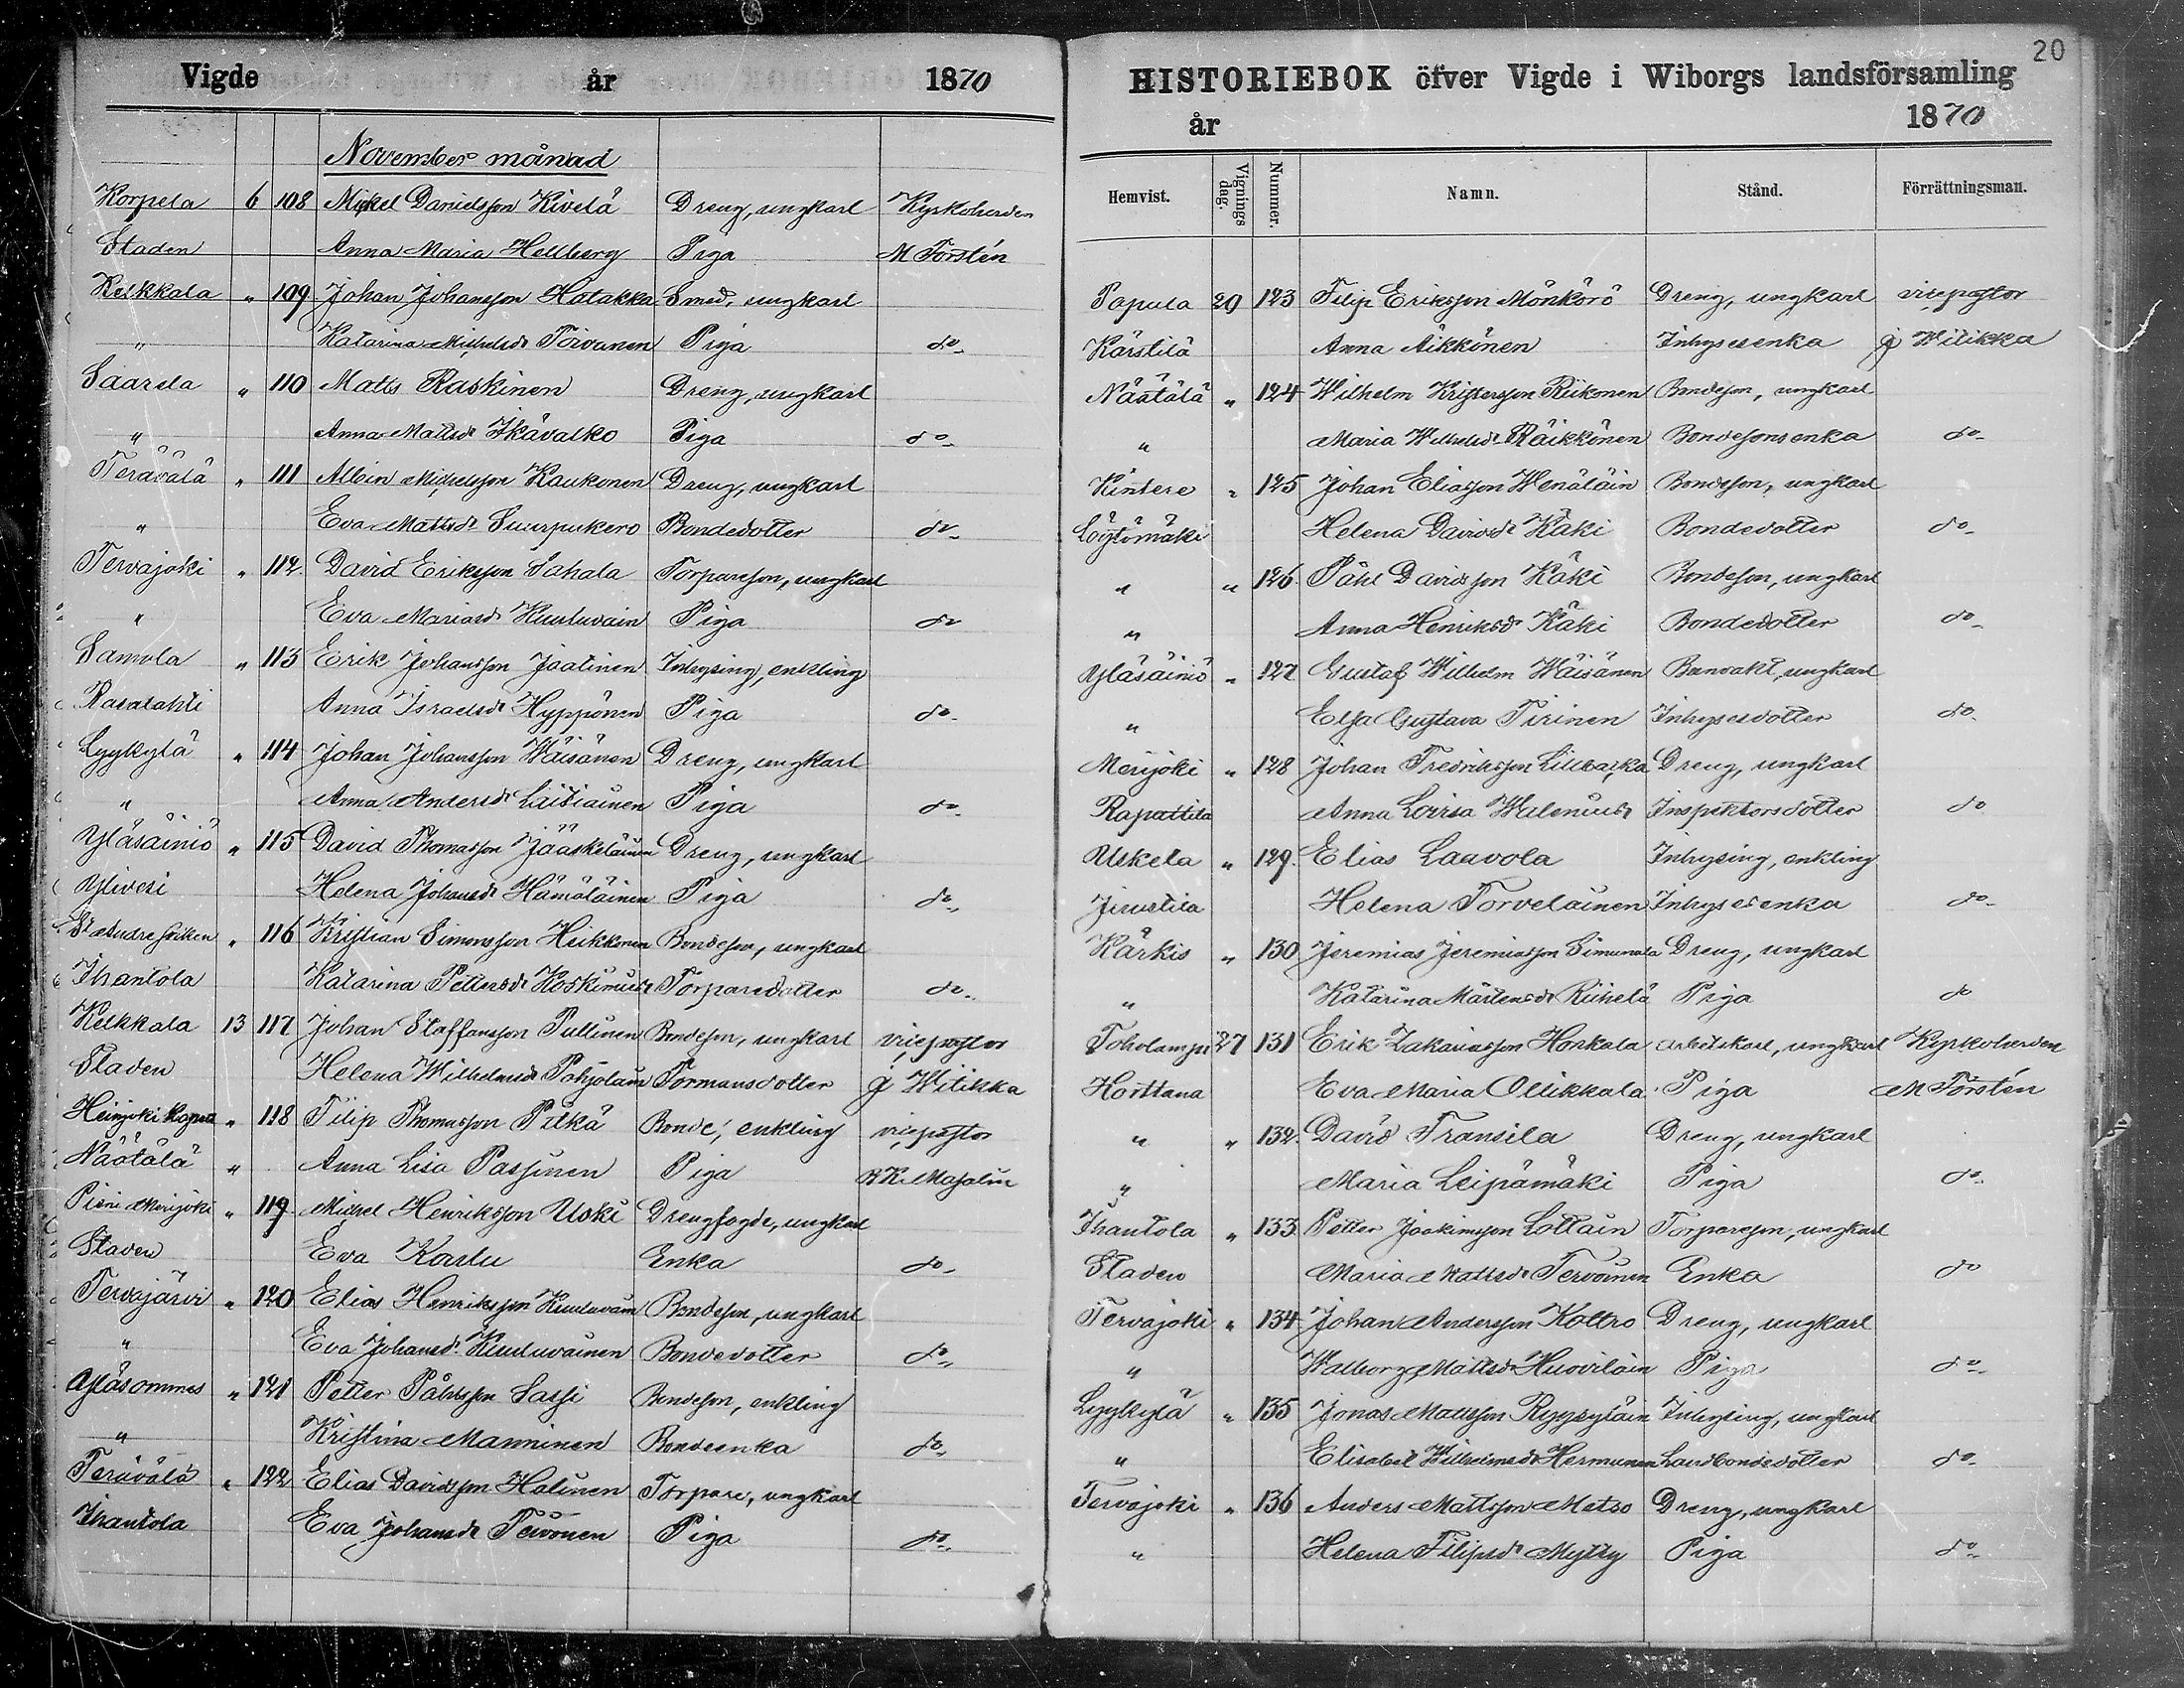 Vigde år 1870
November månad
Korpela 6 108 Mikel Danielsson Kivelä Dreng, ungkarl Kyrkoherden
Staden Anna Maria Hellberg Piga M Forstén
Kelkkala " 109 Johan Johansson Hatakka Smed, ungkarl
" Katarina Michelsdr Toivanen Piga do
Saarela " 110 Matts Raskinen Dreng, ungkarl
" Anna Mattsdr Ikävalko Piga do
Terävälä " 111 Albin Michelsson Kaukonen Dreng, ungkarl
" Eva Mattsdr Suurpukero Bondedotter do
Tervajoki " 112 David Eriksson Sahala Torpareson, ungkarl
" Eva Mariasdr Kuuluvain Piga do
Samola " 113 Erik Johansson Jaatinen Inhysing, enkling
Rasalahti Anna Israelsdr Hyppönen Piga do
Lyykylä " 114 Johan Johansson Wäisänen Dreng, ungkarl
" Anna Andersdr Laitiainen Piga do
Yläsäiniö " 115 David Thomasson Jääskeläinen Dreng, ungkarl
Ylivesi Helena Johansdr Hämäläinen Piga do
St Andre socken " 116 Kristian Simonsson Heikkonen Bondeson, ungkarl
Ihantola Katarina Pettersdr Torparedotter do
Kelkkala 13 117 Johan Staffansson Pullinen Bondeson, ungkarl vicepastor
Staden Helena Wilhelmsdr Pohjolain Formansdotter J Witikka
Heinjoki Kapell " 118 Filip Thomasson Pitkä Bonde, enkling vicepastor
Näätälä " Anna Lisa Passinen Piga K K Masalin
Pieni Merijoki " 119 Michel Henriksson Uski Drengfogde, ungkarl
Staden Eva Karlu Enka do
Tervajärvi " 120 Elias Henriksson Kuuluvain Bondeson, ungkarl
" Eva Johansdr Kuuluvainen Bondedotter do
Yläsommes " 121 Petter Påhlsson Sassi Bondeson, enkling
" Kristina Manninen Bondeenka do
Terävälä " 122 Elias Davidsson Halinen Torpare, ungkarl
Ihantola Eva Johansdr Tervonen Piga do
20
HISTORIEBOK öfver Vigde i Wiborgs landsförsamling
år 1870
Hemvist. Vignings dag. Nummer. Namn. Stånd. Förrättningsman.
Papula 20 123 Filip Eriksson Mönkörö Dreng, ungkarl vicepastor
Kärstilä Anna Äikkönen Inhysesenka J Witikka
Näätälä " 124 Wilhelm Kristersson Riikonen Bondeson, ungkarl
" Maria Wilhelmsdr Räikkönen Bondesonsenka do
Kintere " 125 Johan Eliasson Wenäläin Bondeson, ungkarl
Löytömäki Helena Davidsdr Käki Bondedotter do
" " 126 Påhl Davidsson Käki Bondeson, ungkarl
" Anna Henriksdr Käki Bondedotter do
Yläsäiniö " 127 Gustaf Wilhelm Wäisänen Banvakt, ungkarl
" Elsa Gustava Tirinen Inhysesdotter do
Merijoki " 128 Johan Fredriksson Dreng, ungkarl
Rapattila Anna Lovisa Waleniusdr Inspektorsdotter do
Uskela " 129 Elias Laavola Inhysing, enkling
Juustila Helena Torveläinen Inhysesenka do
Kärkis " 130 Jeremias Jeremiasson Simunala Dreng, ungkarl
" Katarina Mårtensdr Riihelä Piga do
Toholampi 27 131 Erik Zakariasson Horkala arbetskarl, ungkarl Kyrkoherden
Horttana Eva Maria Ollikkala Piga M Forstén
" " 132 David Transila Dreng, ungkarl
" Maria Leipämäki Piga do
Ihantola " 133 Petter Joakimsson Lottain Torpareson, ungkarl
Staden Maria Mattsdr Tervoinen Enka do
Tervajoki " 134 Johan Andersson Koltro Dreng, ungkarl
" Walborg Mattsdr Huovilain Piga do
Lyykylä " 135 Jonas Mattsson Ryysyläin Inhysing, ungkarl
" Elisabet Wilhelmsdr Hermunen Landbondedotter do
Tervajoki " 136 Anders Mattsson Metso Dreng, ungkarl
" Helena Filipsdr Mytty Piga do